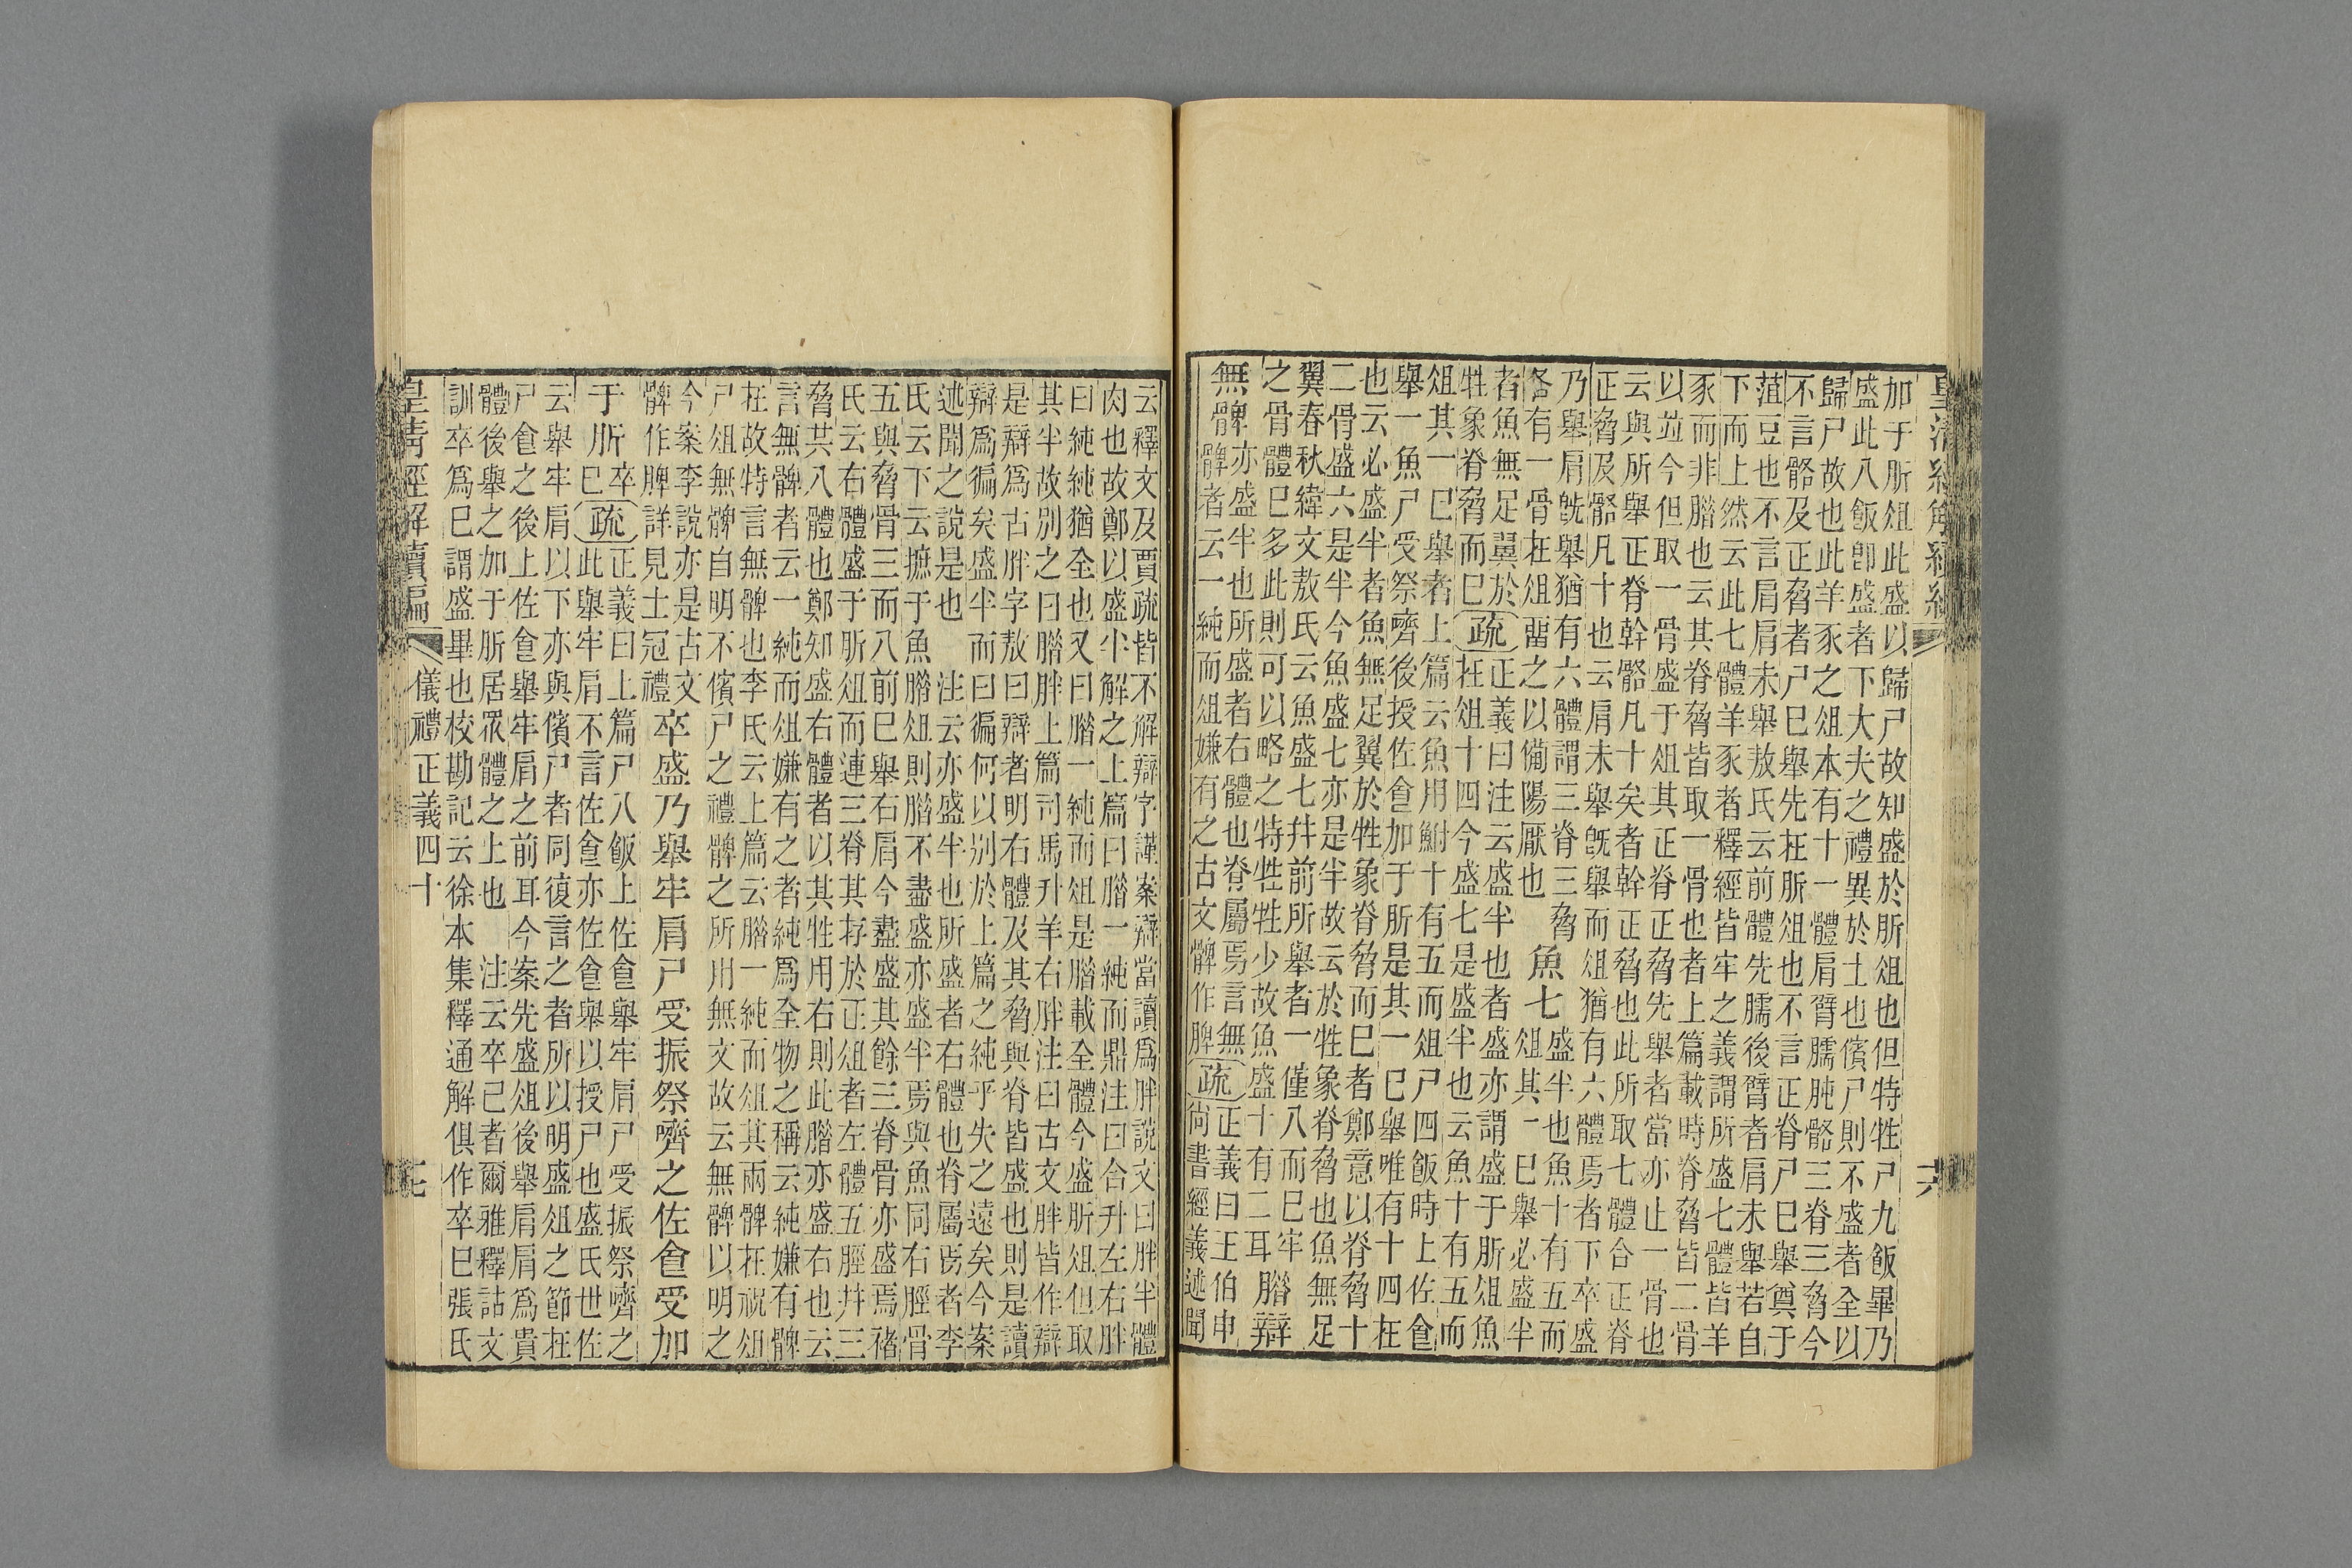 加于肵俎此盛以歸尸故知盛於肵俎也但特牲尸九飯畢乃
盛此八飯卽盛者下大夫之禮異於士也儐尸則不盛者全以
歸尸故也此羊豕之俎本有十一體肩臂臑肫骼三脊三脅今
不言骼及正脅者尸巳舉先在肵俎也不言正脊尸巳舉奠于
菹豆也不言肩肩未舉敖氏云前體先臑後臂者肩未舉若自
下而上然云此七體羊豕者釋經皆牢之義謂所盛七體皆羊
豕而非腊也云其脊脅皆取一骨也者上篇載時脊脅皆二骨
以竝今但取一骨盛于俎其正脊正脅先舉者當亦止一骨也
云與所舉正脊幹骼凡十矣者幹正脅也此所取七體合正脊
正脅及骼凡十也云肩未舉旣舉而俎猶有六體焉者下卒盛
乃舉肩旣舉猶有六體謂三脊三脅
各有一骨在俎畱之以備陽厭也
魚七
盛半也魚十有五而
俎其一巳舉必盛半
者魚無足翼於
牲象脊脅而巳
疏
正義曰注云盛半也者盛亦謂盛于肵俎魚
在俎十四今盛七是盛半也云魚十有五而
俎其一巳舉者上篇云魚用鮒十有五而俎尸四飯時上佐食
舉一魚尸受祭嚌後授佐食加于肵是其一巳舉唯有十四在
也云必盛半者魚無足翼於牲象脊脅而巳者鄭意以脊脅十
二骨盛六是半今魚盛七亦是半故云於牲象脊脅也魚無足
翼春秋緯文敖氏云魚盛七幷前所舉者一僅八而巳牢
之骨體巳多此則可以略之特牲牲少故魚盛十有二耳
腊辯
無髀
亦盛半也所盛者右體也脊屬焉言無
髀者云一純而俎嫌有之古文髀作脾
疏
正義曰王伯申
尚書經義述聞
云釋文及賈疏皆不解辯字謹案辯當讀爲胖說文曰胖半體
肉也故鄭以盛半解之上篇曰腊一純而鼎注曰合升左右胖
曰純純猶全也又曰腊一純而俎是腊載全體今盛肵俎但取
其半故別之曰腊胖上篇司馬升羊右胖注曰古文胖皆作辯
是辯爲古胖字敖曰辯者明右體及其脅與脊皆盛也則是讀
辯爲徧矣盛半而曰徧何以別於上篇之純乎失之遠矣今案
述聞之說是也　注云亦盛半也所盛者右體也脊屬焉者李
氏云下云摭于魚腊俎則腊不盡盛亦盛半焉與魚同右脛骨
五與脅骨三而八前巳舉右肩今盡盛其餘三脊骨亦盛焉褚
氏云右體盛于肵俎而連三脊其存於正俎者左體五脛幷三
脅共八體也鄭知盛右體者以其牲用右則此腊亦盛右也云
言無髀者云一純而俎嫌有之者純爲全物之稱云純嫌有髀
在故特言無髀也李氏云上篇云腊一純而俎其兩髀在祝俎
尸俎無髀自明不儐尸之禮髀之所用無文故云無髀以明之
今案李說亦是古文
髀作脾詳見士冠禮
卒盛乃舉牢肩尸受振祭嚌之佐食受加
于肵
卒
巳
疏
正義曰上篇尸八飯上佐食舉牢肩尸受振祭嚌之
此舉牢肩不言佐食亦佐食舉以授尸也盛氏世佐
云舉牢肩以下亦與儐尸者同復言之者所以明盛俎之節在
尸食之後上佐食舉牢肩之前耳今案先盛俎後舉肩肩爲貴
體後舉之加于肵居眾體之上也　注云卒已者爾雅釋詁文
訓卒爲巳謂盛畢也校勘記云徐本集釋通解俱作卒巳張氏
皇清經解續編　儀禮正義四十